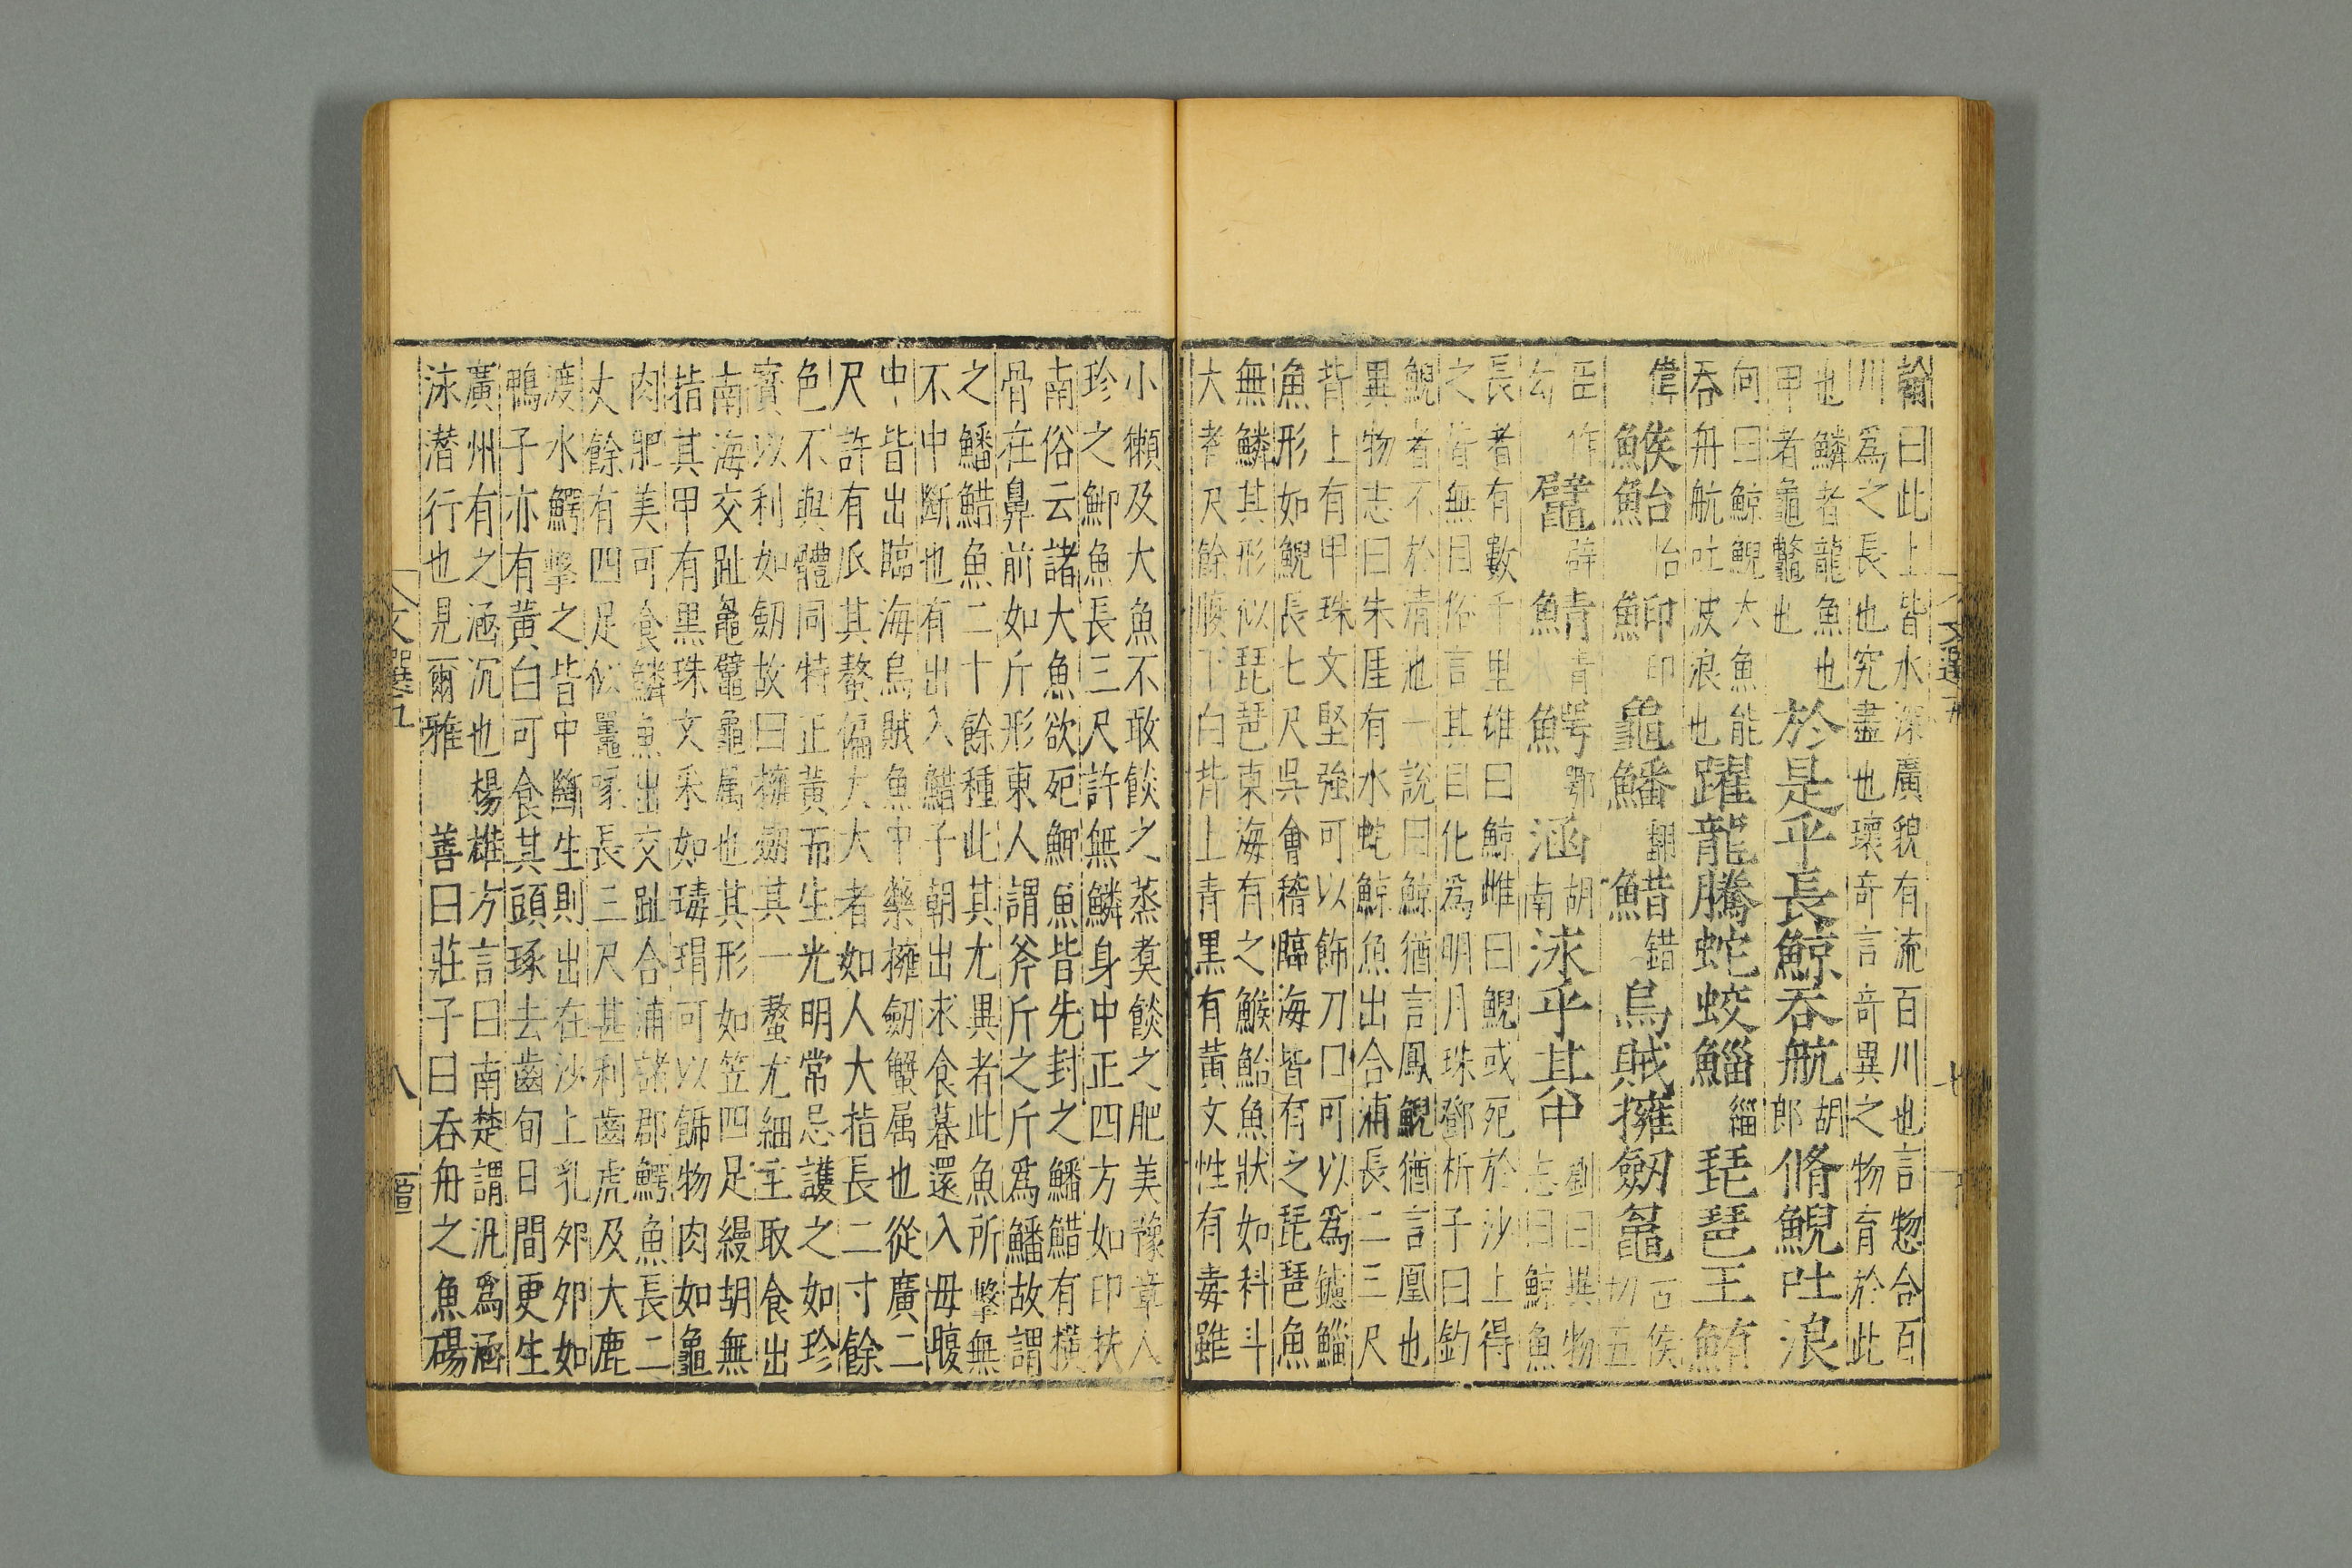 翰曰此上皆水深廣貌有流百川也言惣合百
川爲之長也究盡也瓌奇言奇異之物育於此
也鱗者龍魚也
甲者龜鼈也
於是乎長鯨吞航
胡
郎
脩鯢吐浪
向曰鯨鯢大魚能
吞舟航吐波浪也
躍龍騰蛇蛟鯔
緇
琵琶王鮪
偉
鯸鮐
怡
鮣
印
龜鱕
翻
䱜
錯
烏賊擁劒鼊
古侯
切五
臣作
幻
鼊
辟
鯖
青
鰐
鄂
涵
胡
南
泳乎其中
劉曰異物
志曰鯨魚
長者有數千里雄曰鯨雌曰鯢或死於沙上得
之皆無目俗言其目化爲明月珠鄧析子曰釣
鯢者不於清池一說曰鯨猶言鳳鯢猶言凰也
異物志曰朱厓有水蛇鯨魚出合浦長二三尺
背上有甲珠文堅強可以飾刀口可以爲鑢鯔
魚形如鯢長七尺吳會稽臨海皆有之琵琶魚
無鱗其形似琵琶東海有之鯸鮐魚狀如科斗
大者尺餘腹下白背上青黑有黃文性有毒雖
小獺及大魚不敢餤之蒸煑餤之肥美豫章人
珍之鮣魚長三尺許無鱗身中正四方如印扶
南俗云諸大魚欲死鮣魚皆先封之鱕䱜有橫
骨在鼻前如斤形東人謂斧斤之斤爲鱕故謂
之鱕䱜魚二十餘種此其尤異者此魚所擊無
不中斷也有出入䱜子朝出求食暮還入母腹
中皆出臨海烏賊魚中藥擁劒蟹属也從廣二
尺許有爪其螯偏大大者如人大指長二寸餘
色不與體同特正黃而生光明常忌護之如珍
寶以利如劒故曰擁劒其一螯尤細主取食出
南海交趾鼊龜属也其形如笠四足縵胡無
指其甲有黑珠文采如瑇瑁可以飾物肉如龜
肉肥美可食鱗魚出交趾合浦諸郡鰐魚長二
丈餘有四足似鼉喙長三尺甚利齒虎及大鹿
渡水鰐擊之皆中斷生則出在沙上乳夘夘如
鴨子亦有黃白可食其頭琢去齒旬日間更生
廣州有之涵沉也楊雄方言曰南楚謂汎爲涵
泳潜行也見爾雅 善曰莊子曰吞舟之魚碭
文選五
七
文選五
八